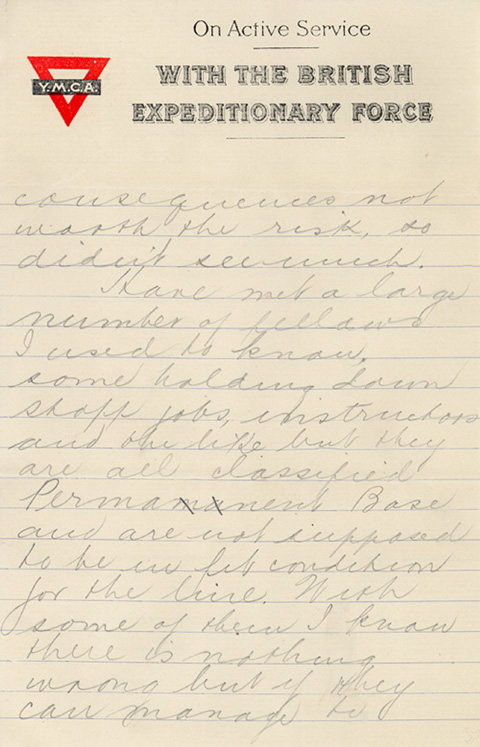 On Active Service
WITH THE BRITISH
EXPEDITIONARY FORCE
Y.M.C.A.
consequences not
worth the risk, so
didn't see much.
Have met a large
number of fellaws
I used to know,
some holding down
staff jobs, instructors
and the like but they
are all classified
Permanent Base
and are not supposed
to be in fit condition
for the line. With
some of them I know
there is nothing
wrong but if they
can manage to